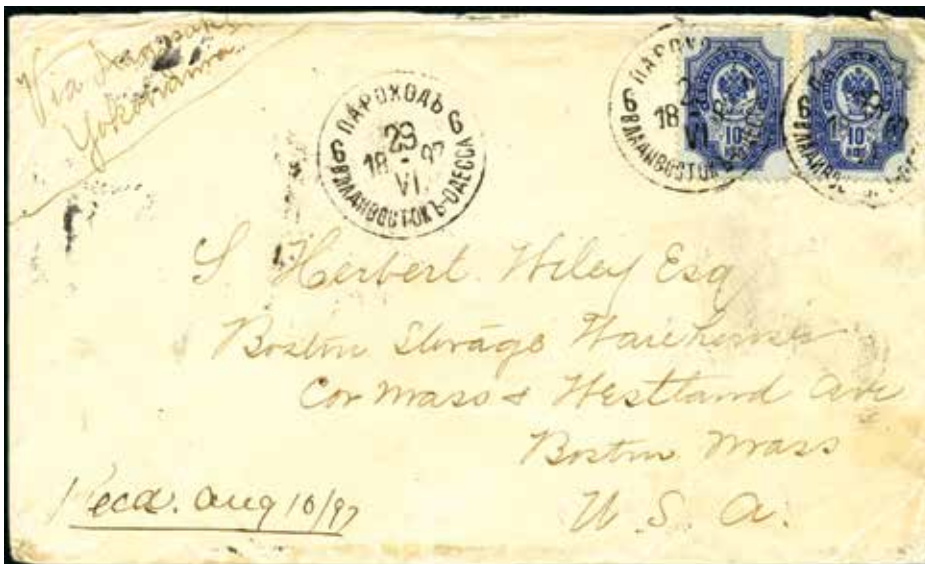 Via Nagasaki
Yokohama
ПАРОХОДЪ
6 6
29
18 - 97
VI.
ВЛАДИВОСТОКЪ-ОДЕССА
ПАРОХ
6
18
VI
ВЛАДИВОСТОК
10
КОП
10
КОП
6
S Herbert Wiley Esq
Boston Storage Warehouse
Cor Mass & Westland Ave
Boston Mass
U. S. A.
Recd. Aug 10/97